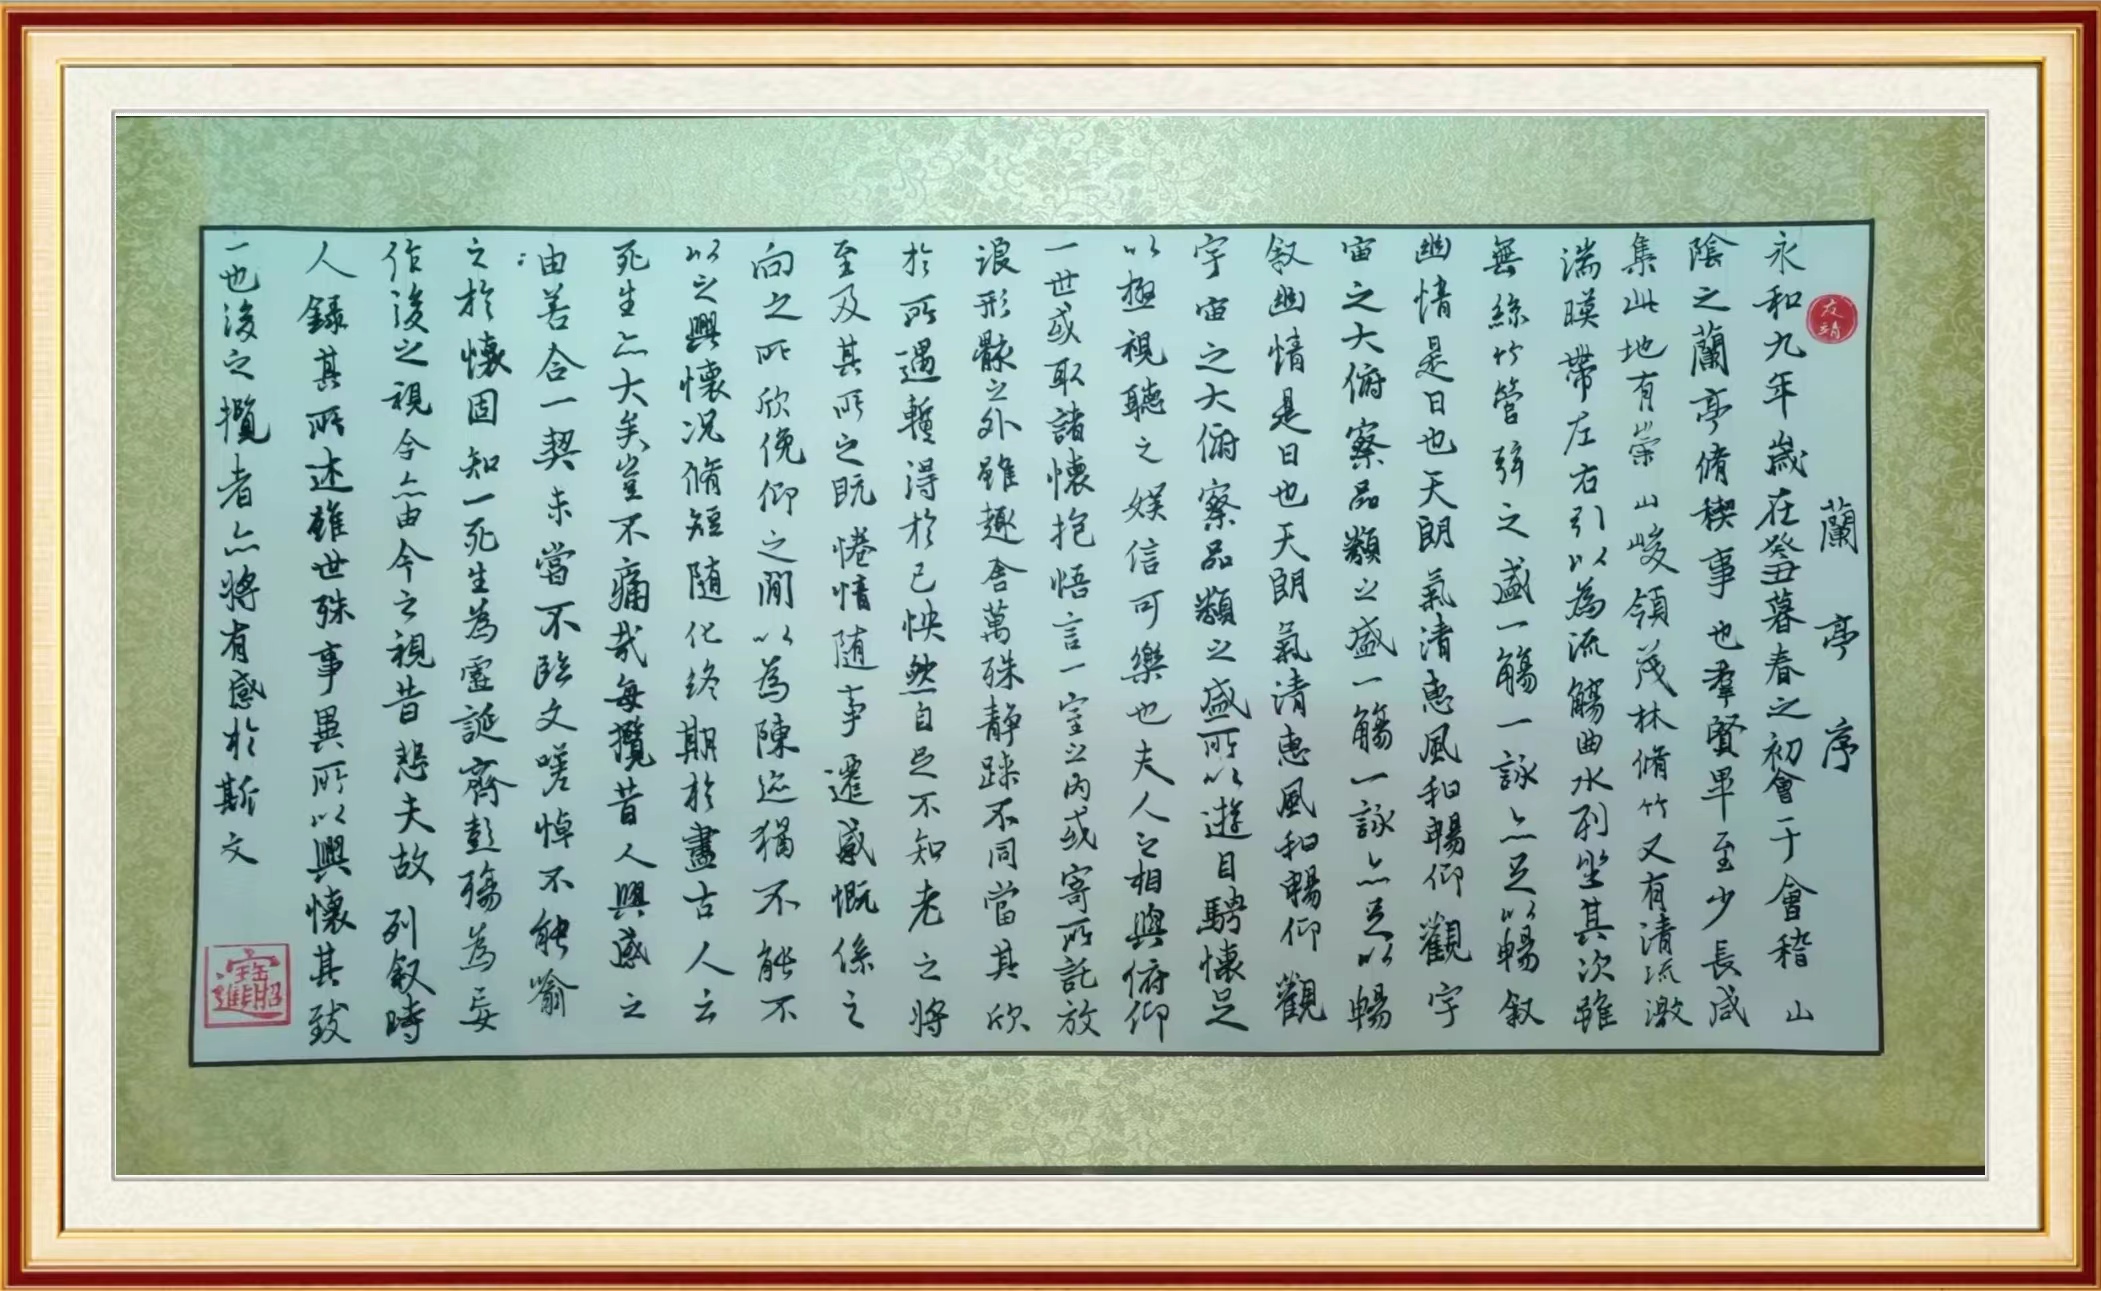 蘭亭序
友靖
永和九年歲在癸丑暮春之初會于會稽山
陰之蘭亭脩稧事也羣賢畢至少長咸
集此地有崇山峻領茂林脩竹又有清流激
湍暎帶左右引以為流觴曲水列坐其次雖
無絲竹管弦之盛一觴一詠亦足以暢叙
幽情是日也天朗氣清惠風和暢仰觀宇
宙之大俯察品類之盛一觴一詠亦足以暢
叙幽情是日也天朗氣清惠風和暢仰觀
宇宙之大俯察品類之盛所以遊目騁懷足
以極視聽之娛信可樂也夫人之相與俯仰
一世或取諸懷抱悟言一室之内或寄所託放
浪形骸之外雖趣舍萬殊静躁不同當其欣
於所遇蹔得於己怏然自足不知老之將
至及其所之既惓情随事遷感慨係之
向之所欣俛仰之間以為陳迹猶不能不
以之興懷况脩短随化終期於盡古人云
死生亦大矣豈不痛哉每攬昔人興感之
由若合一契未嘗不臨文嗟悼不能喻
之於懷固知一死生為虛誕齊彭殤為妄
作後之視今亦由今之視昔悲夫故列叙時
人録其所述雖世殊事異所以興懷其致
一也後之攬者亦將有感於斯文
招財進寶